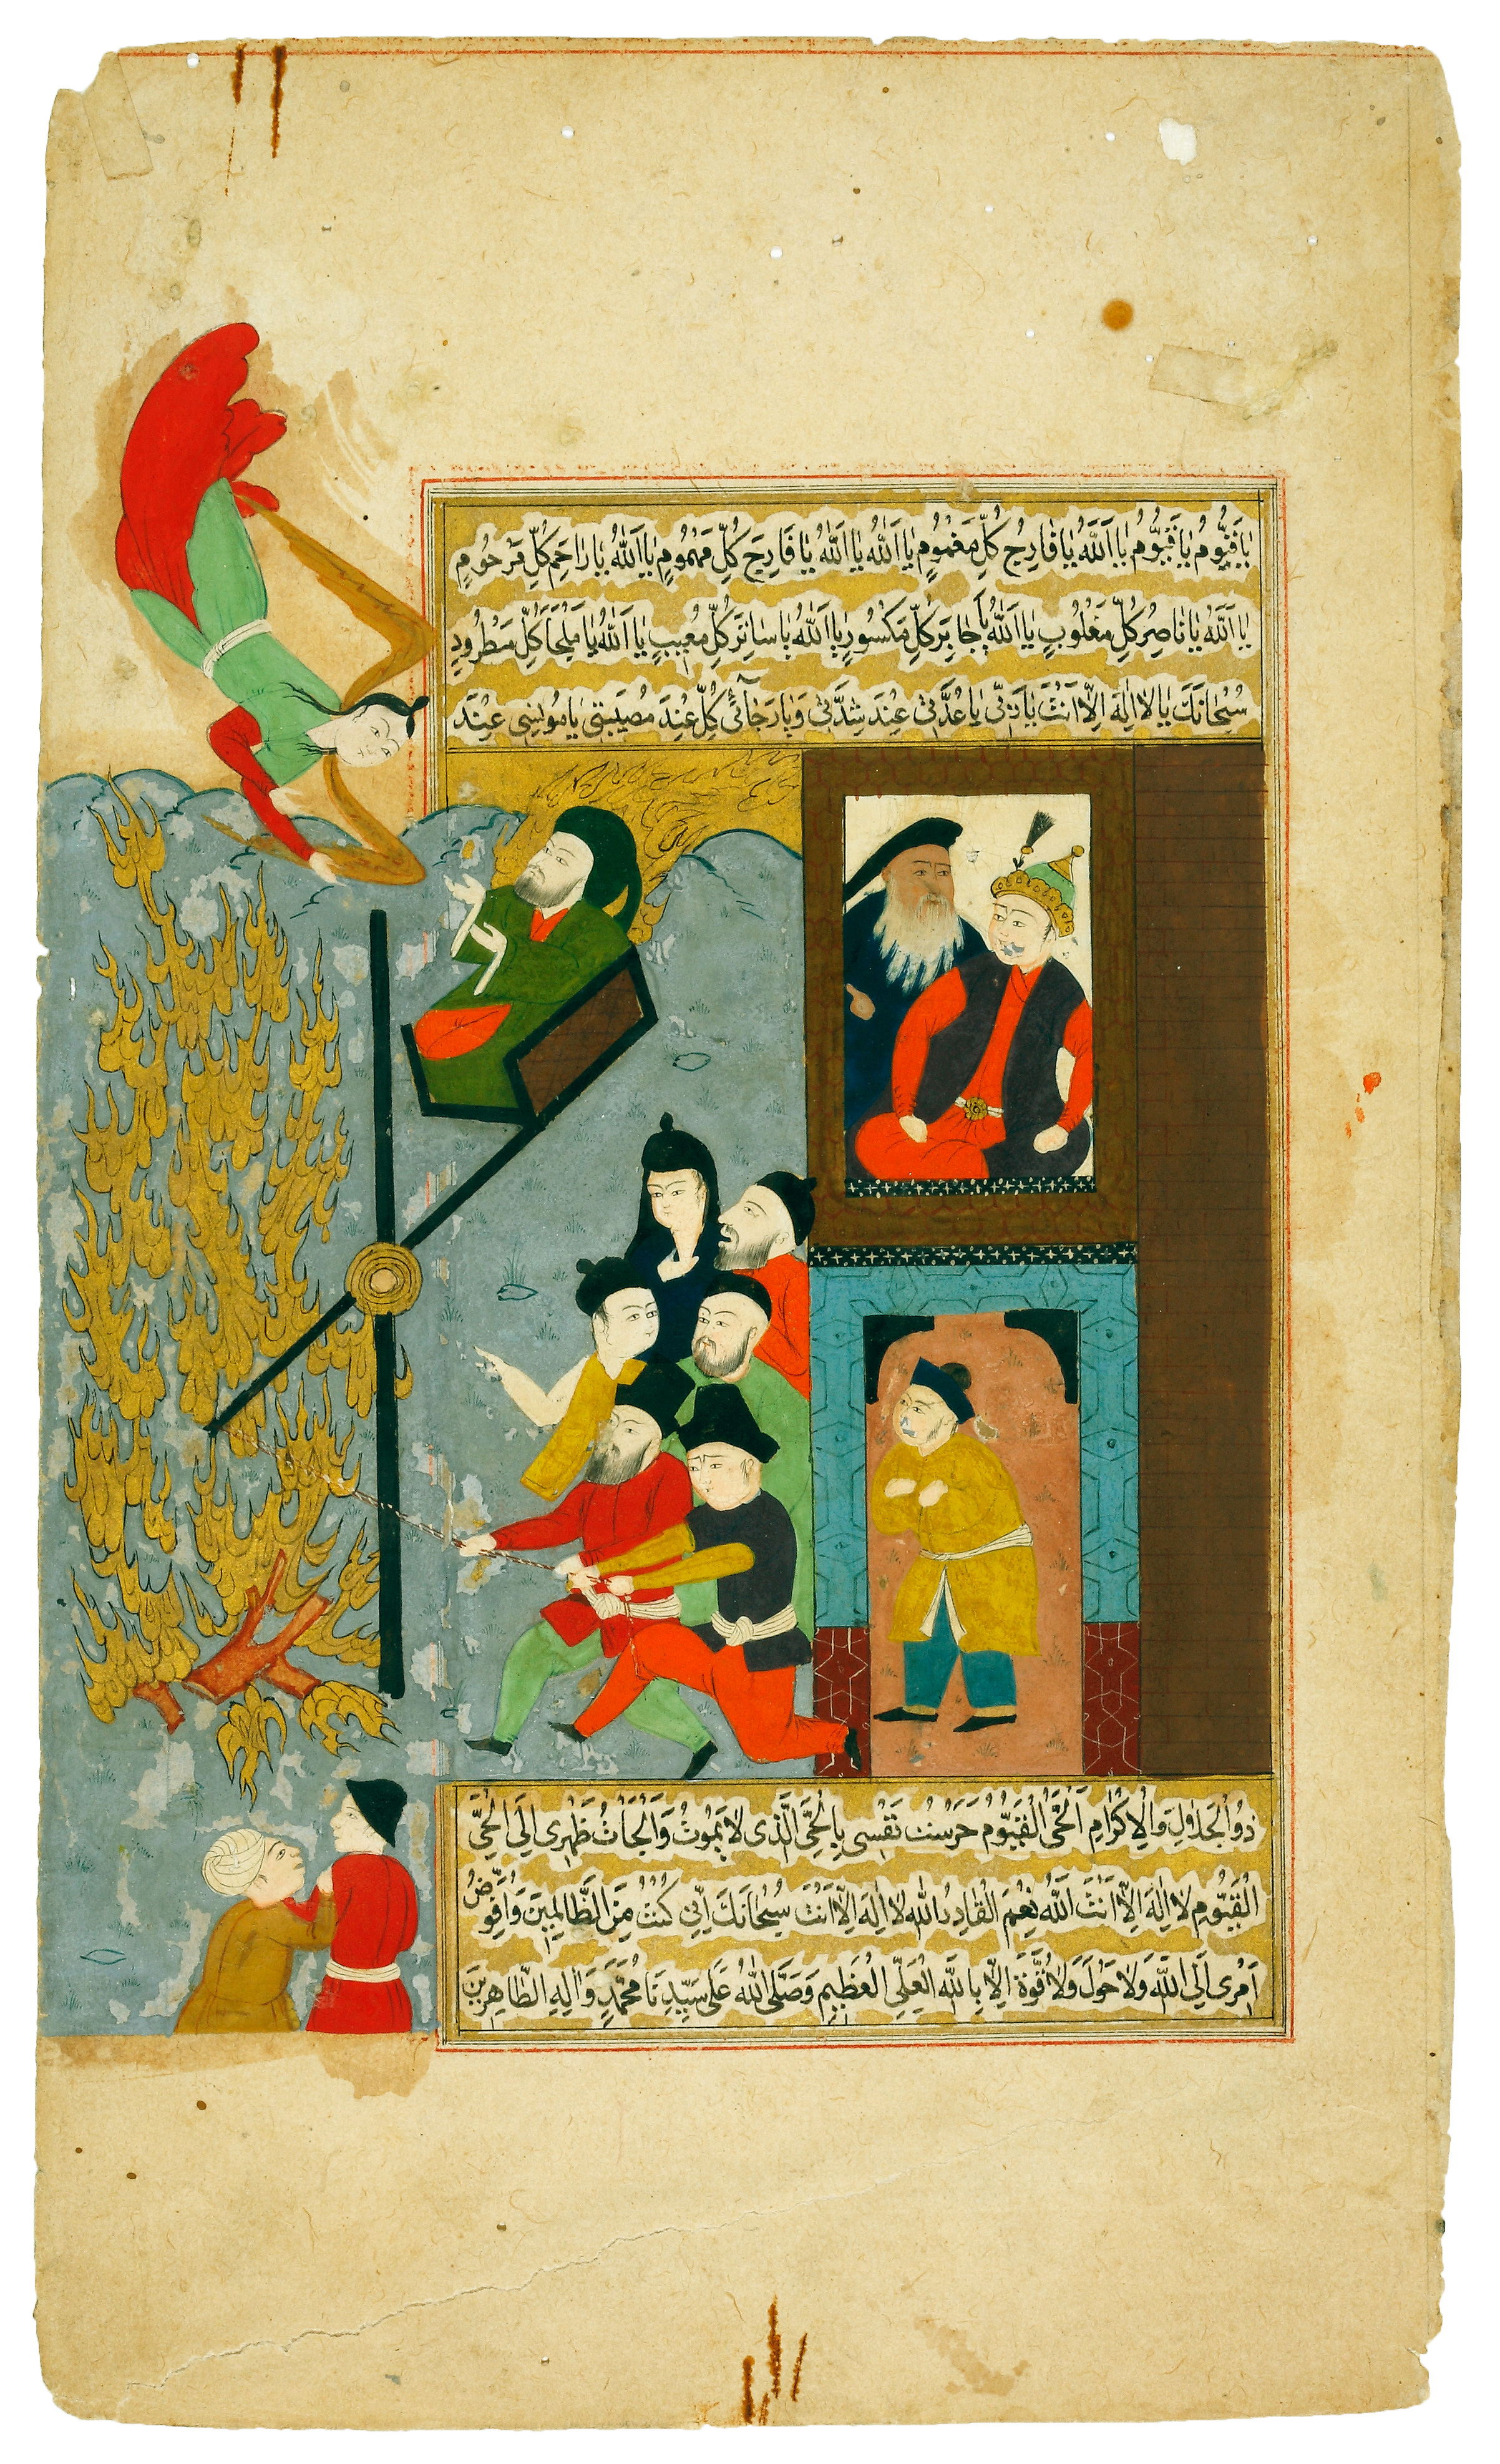 يَا قَيُّومُ يَا قَيُّومُ يَا اَللّٰهُ يَا فَارِجُ كُلِّ مَغْمُومٍ يَا اَللّٰهُ يَا اَللّٰهُ يَا فَارِجَ كُلِّ مَهْمُومٍ يَا اَللّٰهُ يَا رَاحِمَ كُلِّ مَرْحُومٍ
يَا اَللّٰهُ يَا نَاصِرُ كُلِّ مَغْلُوبٍ يَا اَللّٰهُ يَا جَابِرَ كُلِّ مَكْسُورٍ يَا اَللّٰهُ يَا سَاتِرَ كُلِّ مُعِيبٍ يَا اَللّٰهُ يَا مَلْجَأَ كُلِّ مَطْرُودٍ
سُبْحَانَكَ يَا لَا اِلٰهَ اِلَّا اَنْتَ يَا رَبِّى يَا عُدَّتِى عِنْدَ شِدَّتِى وَيَا رَجَائِى كُلِّ عِنْدَ مُصِيبَتِى يَا مُونِسِى عِنْدَ
ذُو الْجَلَالِ وَالْاِكْرَامِ اَلْحَىُّ الْقَيُّومُ حَرَسْتُ نَفْسِى بِالْحَىِّ الَّذِى لَا يَمُوتُ وَاَلْجَاْتُ ظَهْرِى اِلَى الْحَىِّ
الْقَيُّومِ لَا اِلٰهَ اِلَّا اَنْتَ اَللّٰهُ نِعْمَ الْقَادِرُ اللّٰهُ لَا اِلٰهَ اِلَّا اَنْتَ سُبْحَانَكَ اِنِّى كُنْتُ مِنَ الظَّالِمِينَ وَاُفَوِّضُ
اَمْرِى اِلَى اللّٰهِ وَلَا حَوْلَ وَلَا قُوَّةَ اِلَّا بِاللّٰهِ الْعَلِىِّ الْعَظِيمِ وَصَلَّى اللّٰهُ عَلَى سَيِّدِنَا مُحَمَّدٍ وَاٰلِهِ الطَّاهِرِينَ